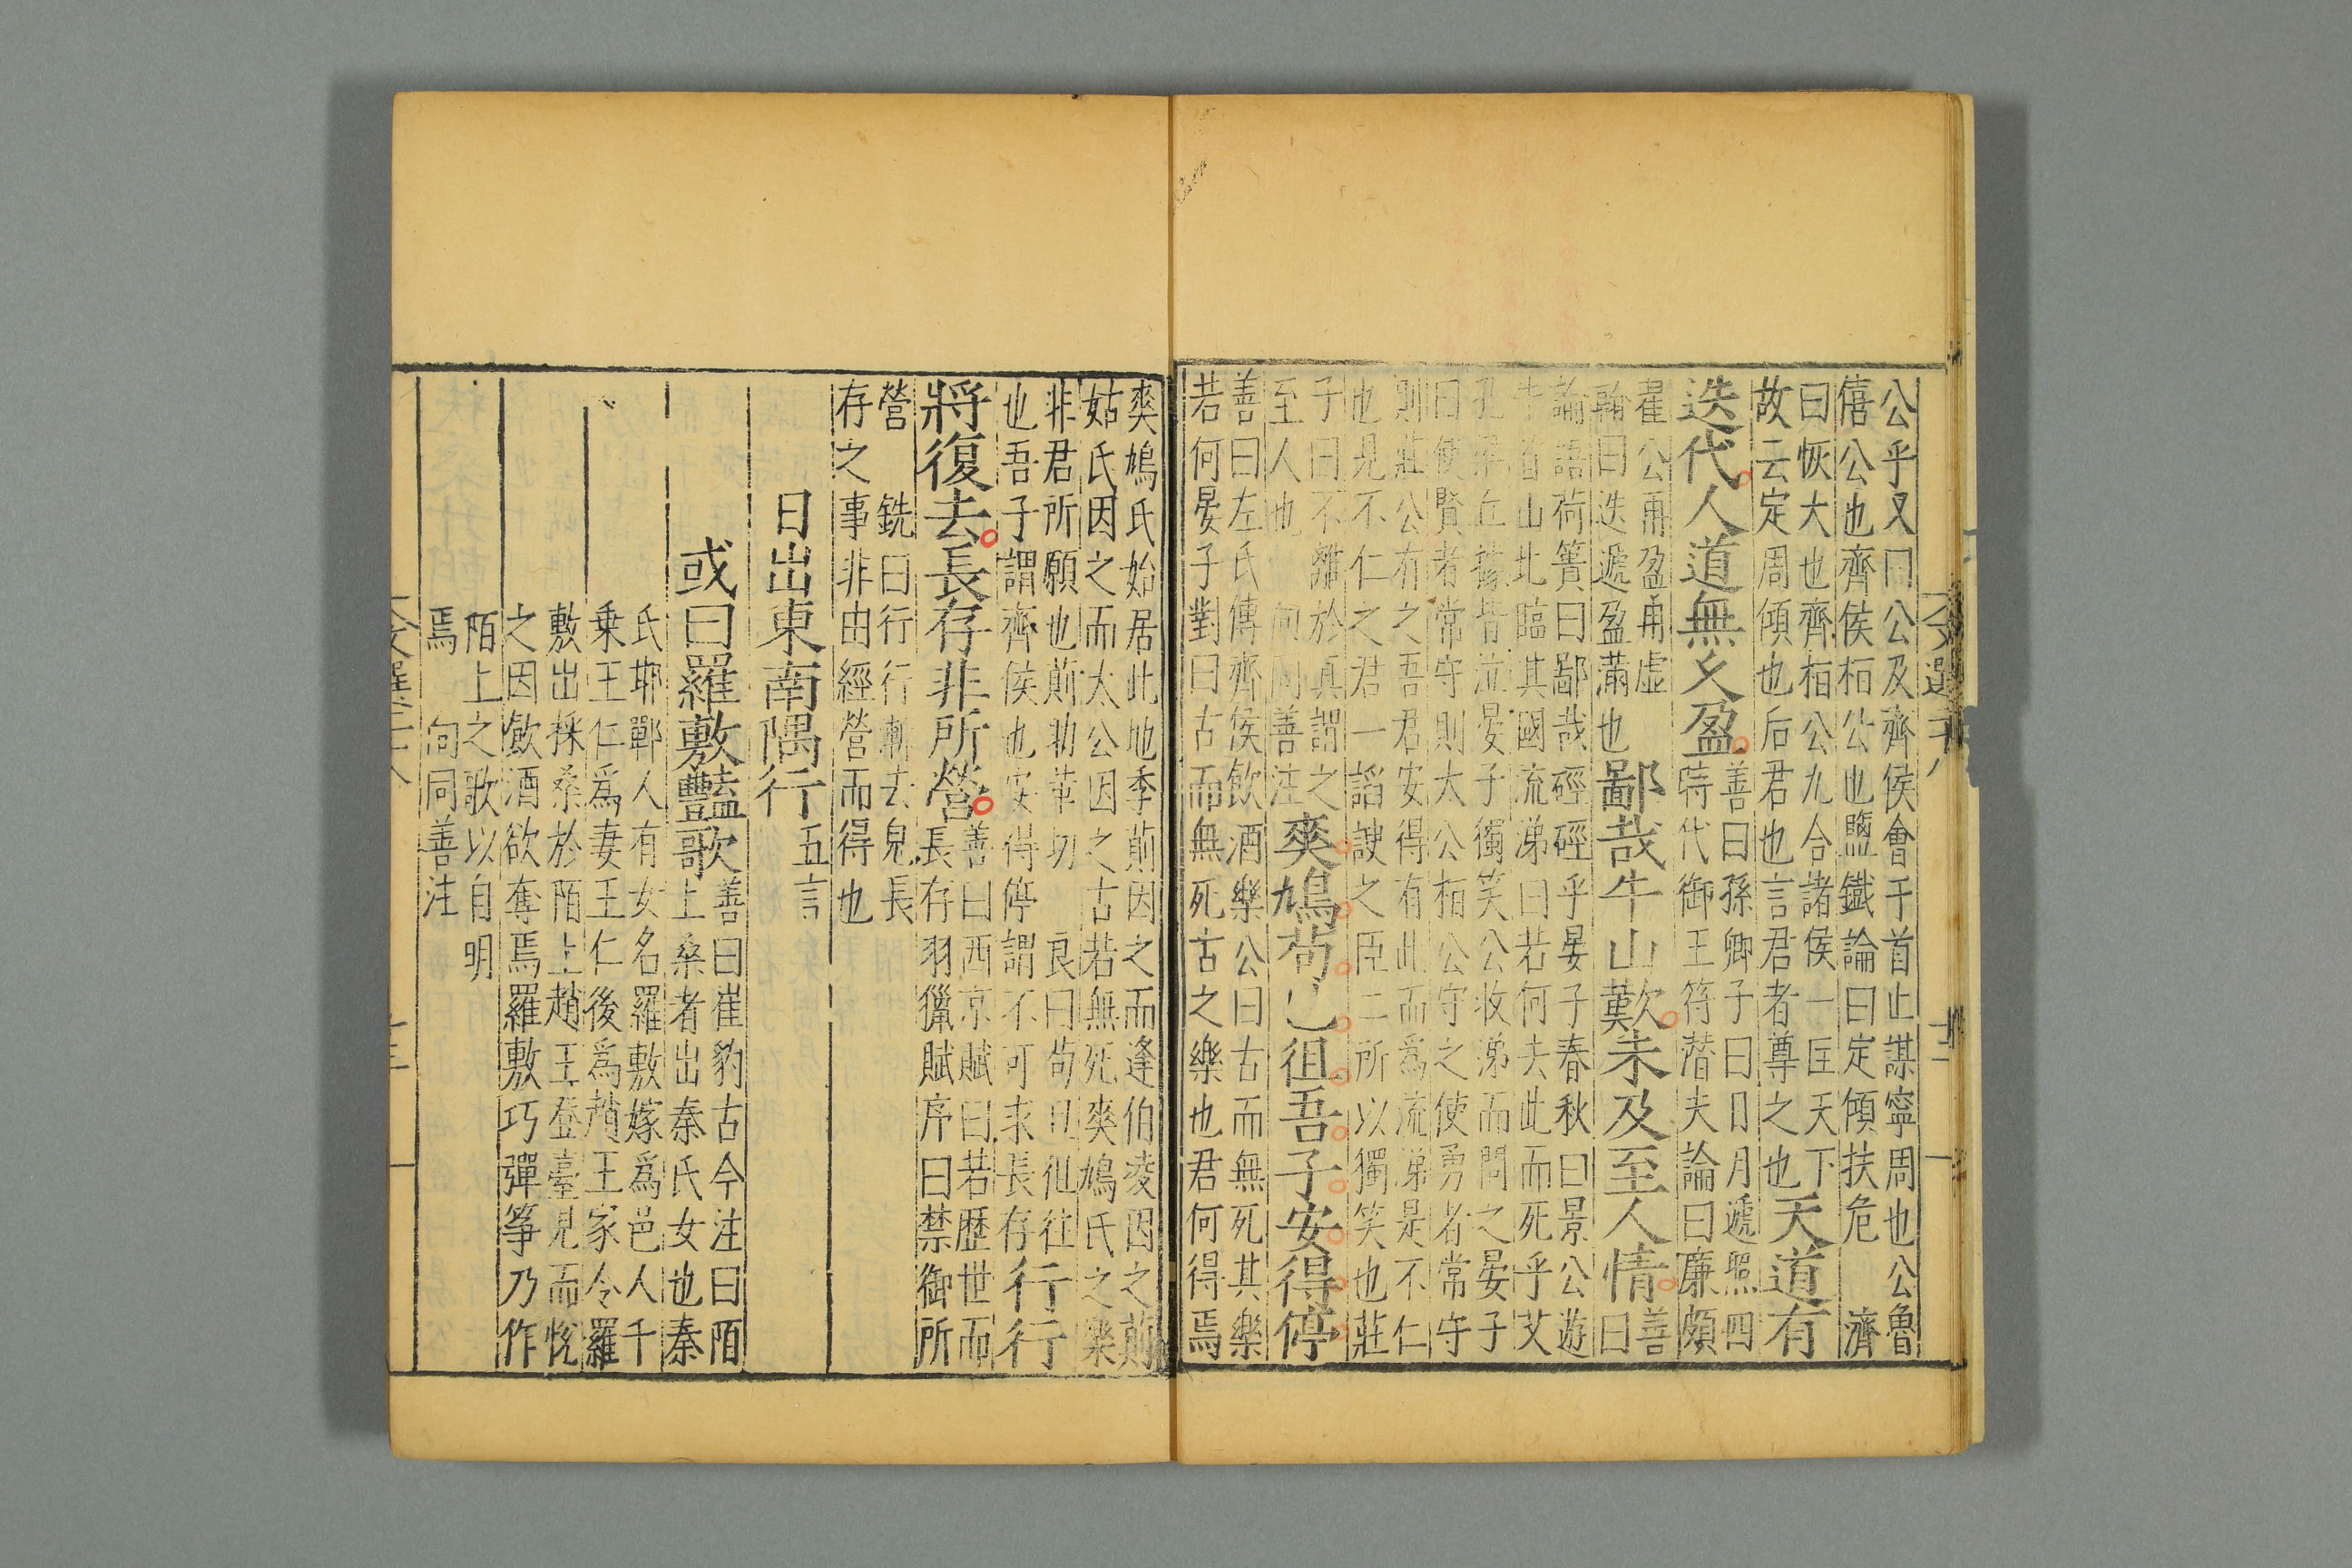 公乎又曰公及齊侯會于首止謀寧周也公魯
僖公也齊侯栢公也鹽鐵論曰定傾扶危　濟
曰恢大也齊栢公九合諸侯一匡天下
故云定周傾也后君也言君者尊之也
天道有
迭代人道無久盈
善曰孫卿子曰日月遞照四
時代御王符潛夫論曰廉頗
翟公再盈再虛
翰曰迭遞盈滿也
鄙哉牛山歎未及至人情
善
曰
論語荷蕢曰鄙哉硜硜乎晏子春秋曰景公遊
牛首山北臨其國流涕曰若何去此而死乎艾
孔梁丘據皆泣晏子獨笑公收涕而問之晏子
曰使賢者常守則太公栢公守之使勇者常守
則莊公有之吾君安得有此而爲流涕是不仁
也見不仁之君一諂諛之臣二所以獨笑也莊
子曰不離於真謂之
至人也　向同善注
爽鳩苟已徂吾子安得停
善曰左氏傳齊侯飲酒樂公曰古而無死其樂
若何晏子對曰古而無死古之樂也君何得焉
文選二十八
十二
爽鳩氏始居此地季萴因之而逢伯凌因之萴
姑氏因之而太公因之古若無死爽鳩氏之樂
非君所願也萴助革切　良曰苟且徂往
也吾子謂齊侯也安得停謂不可求長存
行行
將復去長存非所營
善曰西京賦曰若歷世而
長存羽獵賦序曰禁御所
營　銑曰行行漸去皃長
存之事非由經營而得也
日出東南隅行
五言
或曰羅敷豔歌
善曰崔豹古今注曰陌
上桑者出秦氏女也秦
氏邯鄲人有女名羅敷嫁爲邑人千
乗王仁爲妻王仁後爲趙王家令羅
敷出採桑於陌上趙王登臺見而悅
之因飲酒欲奪焉羅敷巧彈箏乃作
陌上之歌以自明
焉　向同善注